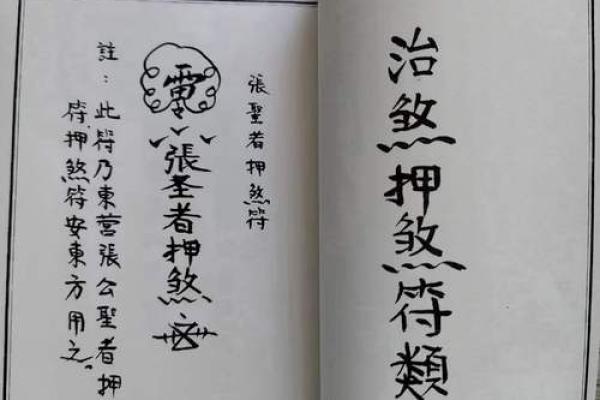 治煞押煞符類
張聖者押煞符
電
張圣者押煞
註：此符乃東營張公聖者押
符押煞符安東方用之。